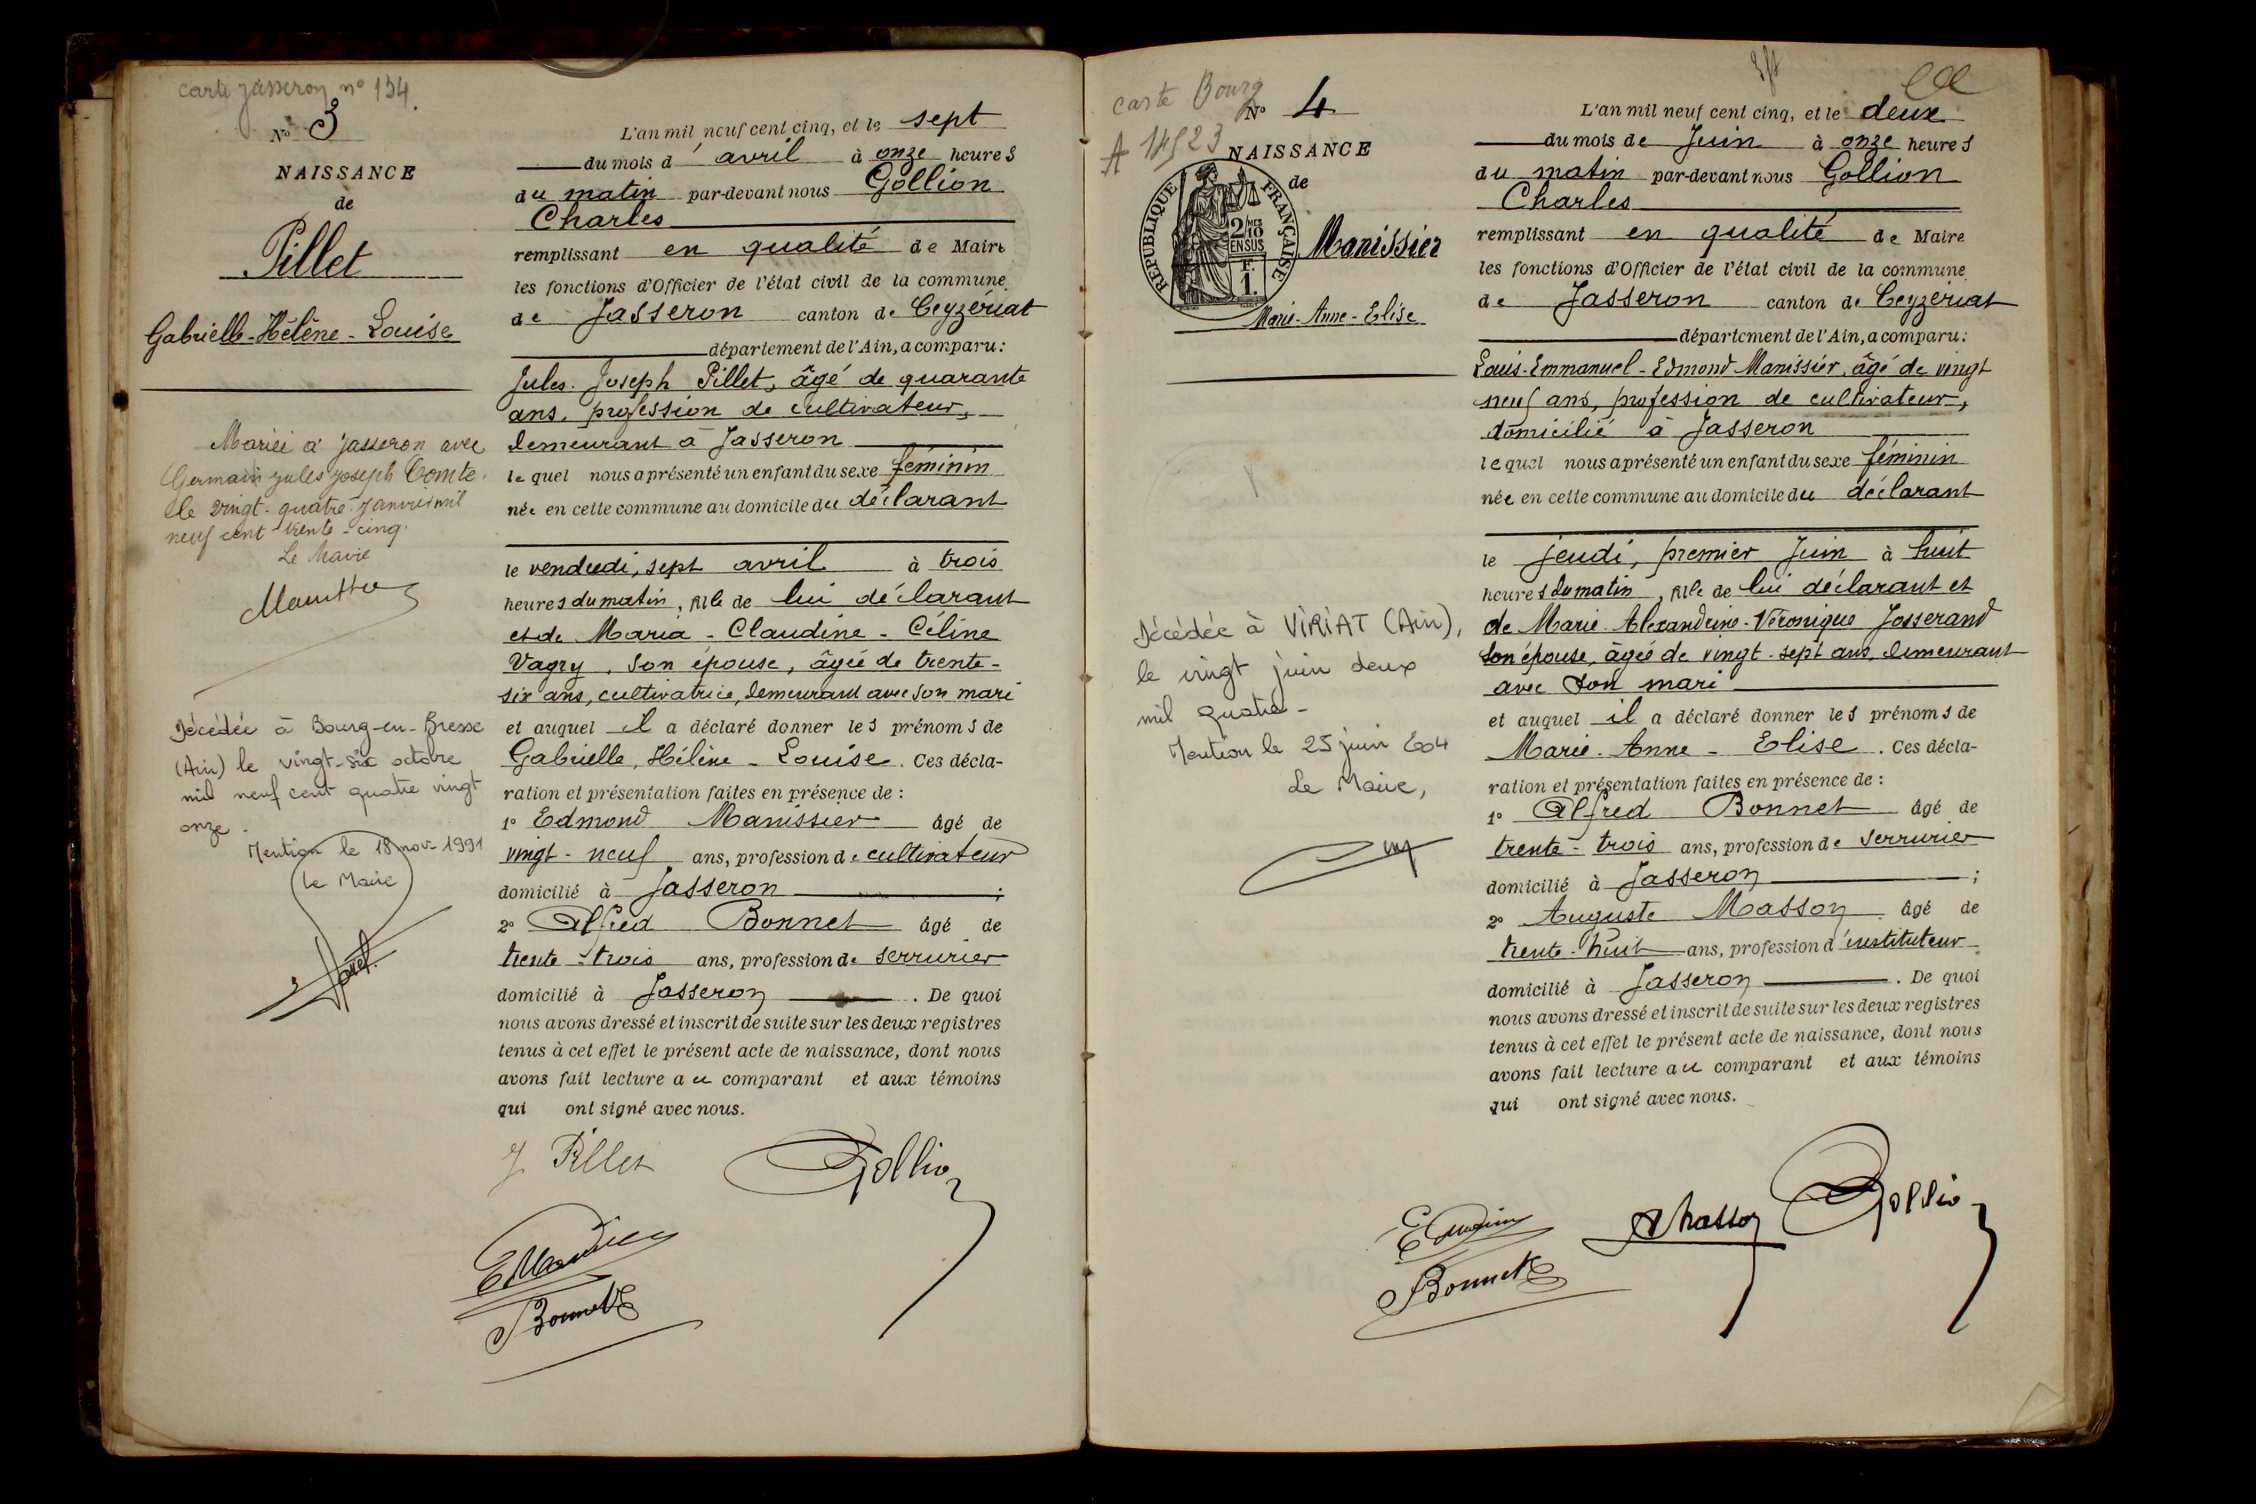 Carte Jasseron n° 134.
N° 3
NAISSANCE
de
Pillet
Gabrielle-Hélène-Louise
Mariée à Jasseron avec
Germain Jules Joseph Comte
le vingt-quatre janvier mil
neuf cent trente-cinq.
Le Maire
Décédée à Bourg-en-Bresse
(Ain) le vingt-six octobre
mil neuf cent quatre vingt
onze.
Mention le 18 nov 1991
Le Maire
L'an mil neuf cent cinq, et le sept
du mois d'avril à onze heures
du matin par-devant nous Gollion
Charles
remplissant en qualité de Maire
les fonctions d'Officier de l'état civil de la commune
de Jasseron canton de Ceyzériat
département de l'Ain, a comparu:
Jules-Joseph Pillet, âgé de quarante
ans, profession de cultivateur,
demeurant à Jasseron
lequel nous a présenté un enfant du sexe féminin
née en cette commune au domicile du déclarant
le vendredi, sept avril à trois
heures du matin, fille de lui déclarant
et de Maria-Claudine-Céline
Vagry, son épouse, âgée de trente-
six ans, cultivatrice, demeurant avec son mari
et auquel il a déclaré donner les prénoms de
Gabrielle, Hélène-Louise. Ces décla-
ration et présentation faites en présence de :
1° Edmond Manissier âgé de
vingt-neuf ans, profession de cultivateur
domicilié à Jasseron ;
2° Alfred Bonnet âgé de
trente-trois ans, profession de serrurier
domicilié à Jasseron . De quoi
nous avons dressé et inscrit de suite sur les deux registres
tenus à cet effet le présent acte de naissance, dont nous
avons fait lecture au comparant et aux témoins
qui ont signé avec nous.
J Pillet Gollion
E Manissier
Bonnet
Carte Bourg
N° 4
A 14523
NAISSANCE
de
REPUBLIQUE FRANÇAISE
2/10 EN SUS
F. 1.
Manissier
Marie-Anne-Elise
Décédée à VIRIAT (Ain),
le vingt juin deux
mil quatre-
Mention le 25 juin 2004
Le Maire,
L'an mil neuf cent cinq, et le deux
du mois de Juin à onze heures
du matin par-devant nous Gollion
Charles
remplissant en qualité de Maire
les fonctions d'Officier de l'état civil de la commune
de Jasseron canton de Ceyzériat
département de l'Ain, a comparu:
Louis-Emmanuel-Edmond Manissier, âgé de vingt
neuf ans, profession de cultivateur,
domicilié à Jasseron
lequel nous a présenté un enfant du sexe féminin
née en cette commune au domicile du déclarant
le jeudi, premier Juin à huit
heures du matin, fille de lui déclarant et
de Marie-Alexandrine-Véronique Josserand
son épouse, âgée de vingt-sept ans, demeurant
avec son mari
et auquel il a déclaré donner les prénoms de
Marie-Anne-Elise . Ces décla-
ration et présentation faites en présence de :
1° Alfred Bonnet âgé de
trente-trois ans, profession de serrurier
domicilié à Jasseron ;
2° Auguste Masson âgé de
trente-huit ans, profession d'instituteur
domicilié à Jasseron . De quoi
nous avons dressé et inscrit de suite sur les deux registres
tenus à cet effet le présent acte de naissance, dont nous
avons fait lecture au comparant et aux témoins
qui ont signé avec nous.
A Masson Gollion
Bonnet